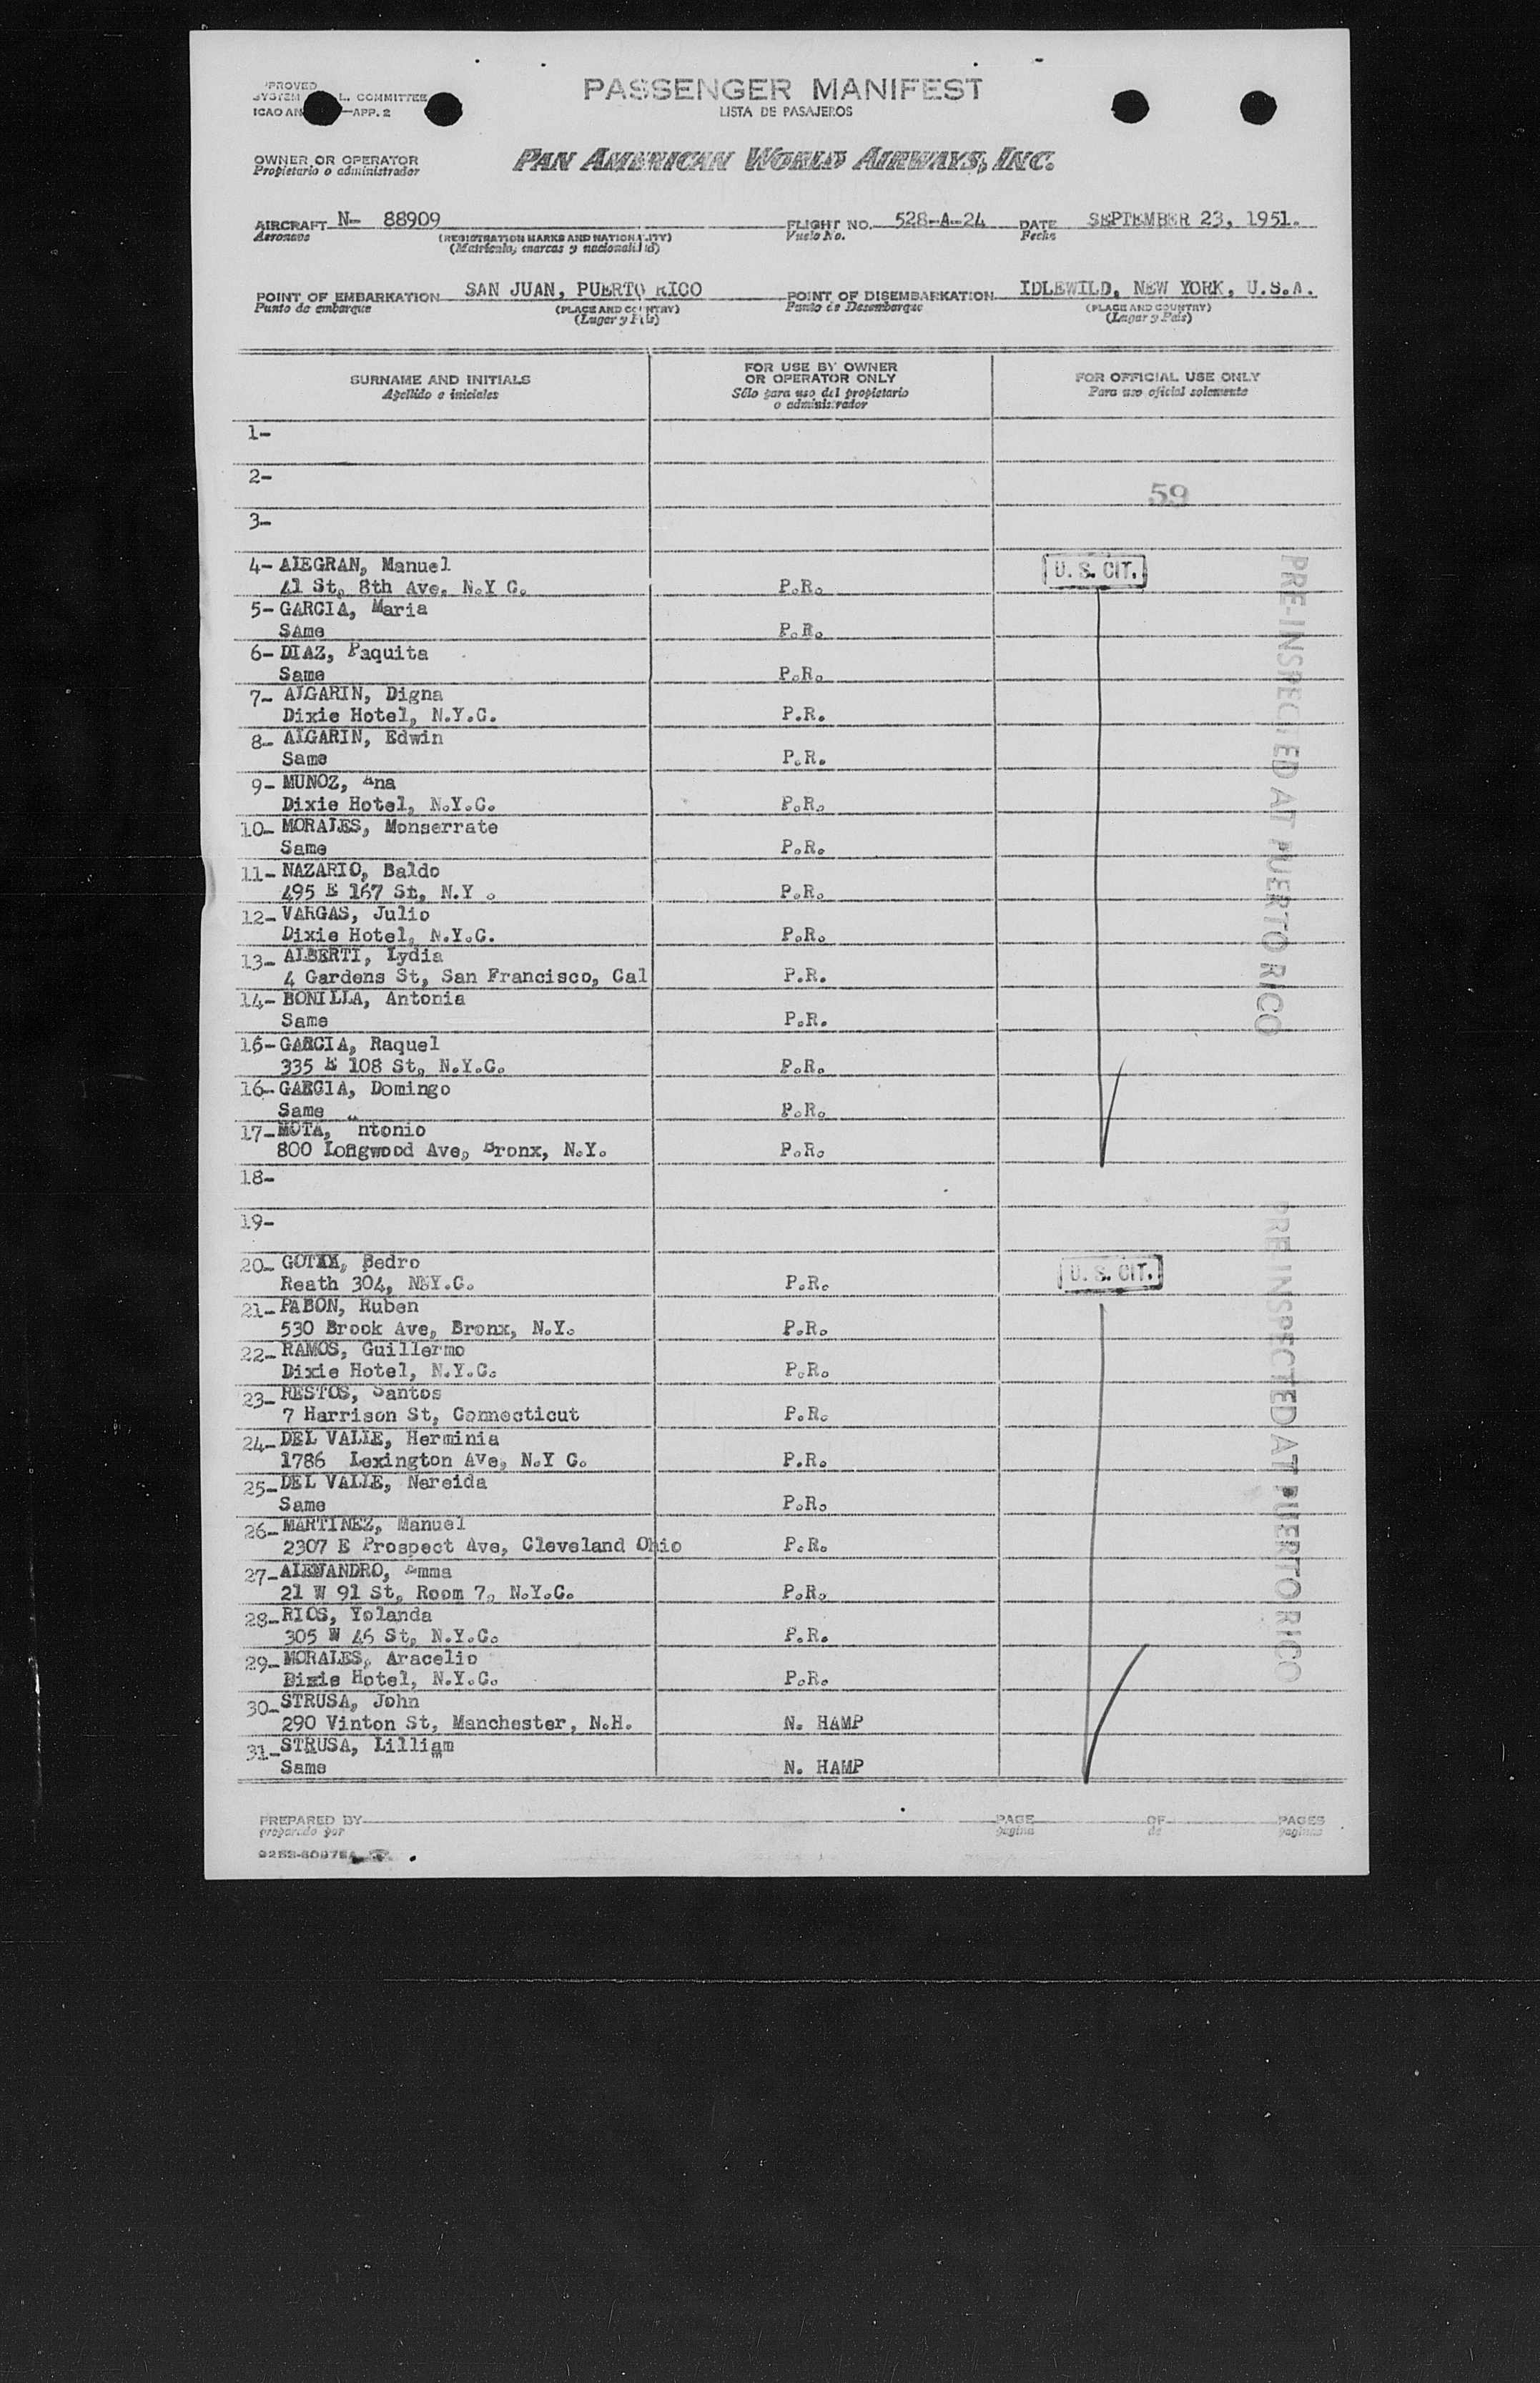 PROVED
SYSTEM L. COMMITTEE
ICAO AN —APP. 2
PASSENGER MANIFEST
LISTA DE PASAJEROS
OWNER OR OPERATOR
Propietario o administrador
PAN AMERICAN WORLD AIRWAYS, INC.
AIRCRAFT N- 88909 FLIGHT NO. 528-A-24 DATE SEPTEMBER 23, 1951.
Aeronave (REGISTRATION MARKS AND NATIONALITY) Vuelo No. Fecha
(Matrícula, marcas y nacionalidad)
POINT OF EMBARKATION SAN JUAN, PUERTO RICO POINT OF DISEMBARKATION IDLEWILD, NEW YORK, U.S.A.
Punto de embarque (PLACE AND COUNTRY) Punto de Desembarque (PLACE AND COUNTRY)
(Lugar y País) (Lugar y País)
SURNAME AND INITIALS FOR USE BY OWNER OR OPERATOR ONLY FOR OFFICIAL USE ONLY
Apellido e iniciales Sólo para uso del propietario o administrador Para uso oficial solamente
1-
2-
59
3-
4- ALEGRAN, Manuel U. S. CIT.
41 St, 8th Ave. N.Y C. P.R.
5- GARCIA, Maria
SAme P.R.
6- DIAZ, Paquita
Same P.R.
7- ALGARIN, Digna
Dixie Hotel, N.Y.C. P.R.
8- ALGARIN, Edwin
Same P.R.
9- MUNOZ, Ana
Dixie Hotel, N.Y.C. P.R.
10- MORALES, Monserrate
Same P.R.
11- NAZARIO, Baldo
495 E 167 St, N.Y . P.R.
12- VARGAS, Julio
Dixie Hotel, N.Y.C. P.R.
13- ALBERTI, Lydia
4 Gardens St, San Francisco, Cal P.R.
14- BONILLA, Antonia
Same P.R.
15- GARCIA, Raquel
335 E 108 St, N.Y.C. P.R.
16- GARCIA, Domingo
Same P.R.
17- MOTA, Antonio
800 Longwood Ave, Bronx, N.Y. P.R.
PRE-INSPECTED AT PUERTO RICO
18-
19-
20- Pedro U. S. CIT.
Reath 304, NSY.C. P.R.
21- PABON, Ruben
530 Brook Ave, Bronx, N.Y. P.R.
22- RAMOS, Guillermo
Dixie Hotel, N.Y.C. P.R.
23- RESTOS, Santos
7 Harrison St, Connecticut P.R.
24- DEL VALLE, Herminia
1786 Lexington Ave, N.Y C. P.R.
25- DEL VALLE, Nereida
Same P.R.
26- MARTINEZ, Manuel
2307 E Prospect Ave, Cleveland Ohio P.R.
27- Emma
21 W 91 St, Room 7, N.Y.C. P.R.
28- RIOS, Yolanda
305 W 46 St, N.Y.C. P.R.
29- MORALES, Aracelio
Dixie Hotel, N.Y.C. P.R.
30- STRUSA, John
290 Vinton St, Manchester, N.H. N. HAMP
31- STRUSA, Lilliam
Same N. HAMP
PRE-INSPECTED AT PUERTO RICO
PREPARED BY PAGE OF PAGES
preparado por pagina de paginas